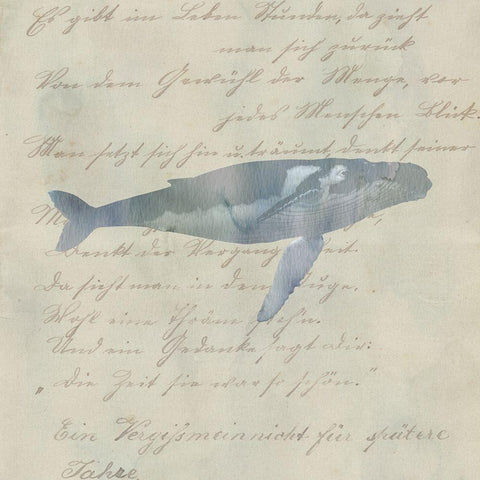 Es gibt im Leben Stunden, da zieht
man sich zurück
Von dem Gewühl der Menge, vor
jedes Menschen Blick.
Man setzt sich hin u. träumt, denkt seiner
Denkt der Vergang heit.
Da sieht man in dem Auge.
Wohl eine Thräm steh'n.
Und ein Gedanke sagt Dir:
„Die Zeit sie war so schön."
Ein Vergißmeinnicht für spätere
Jahre.